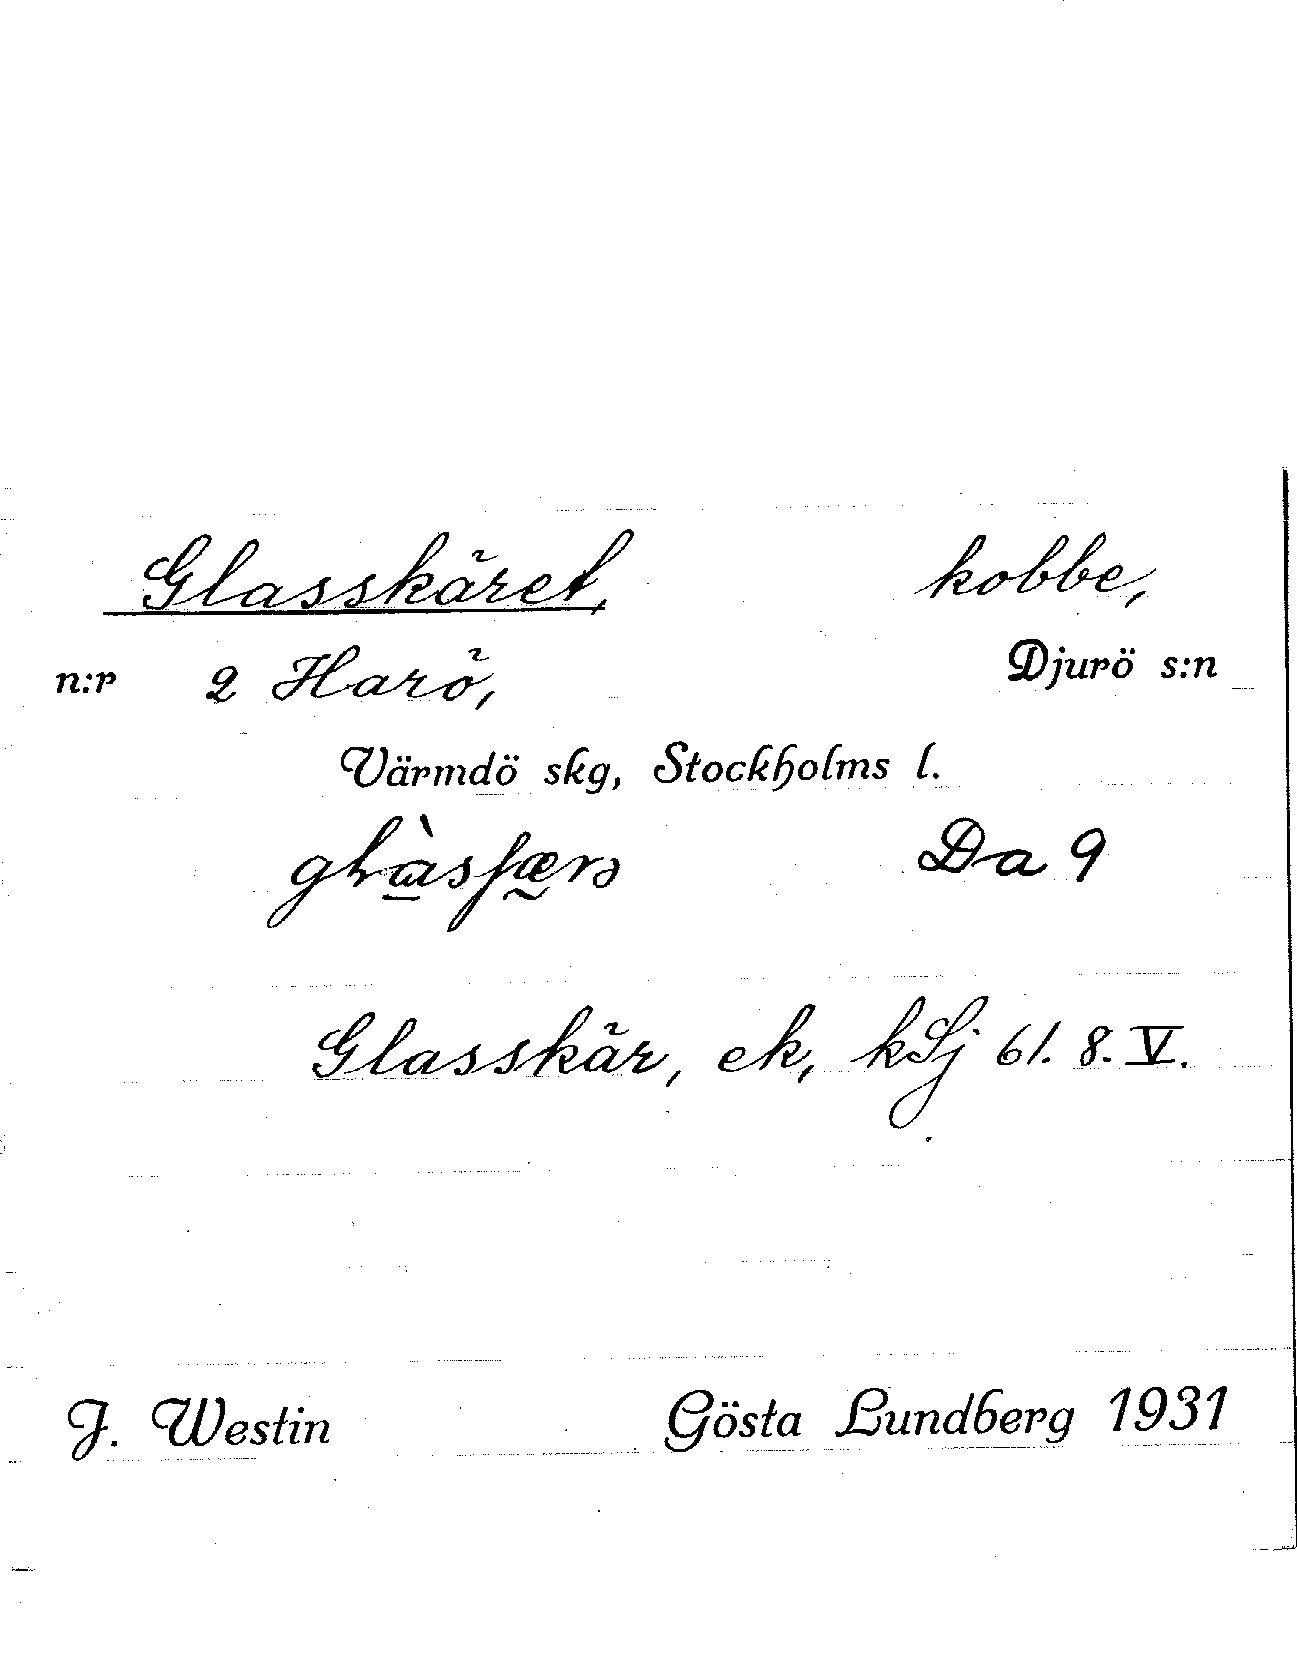 Glasskäret, kobbe,
n:r 2 Harö, Djurö s:n
Värmdö skg, Stockholms l.
Da 9
Glasskär, ek, kSj 61. 8. V.
J. Westin Gösta Lundberg 1931